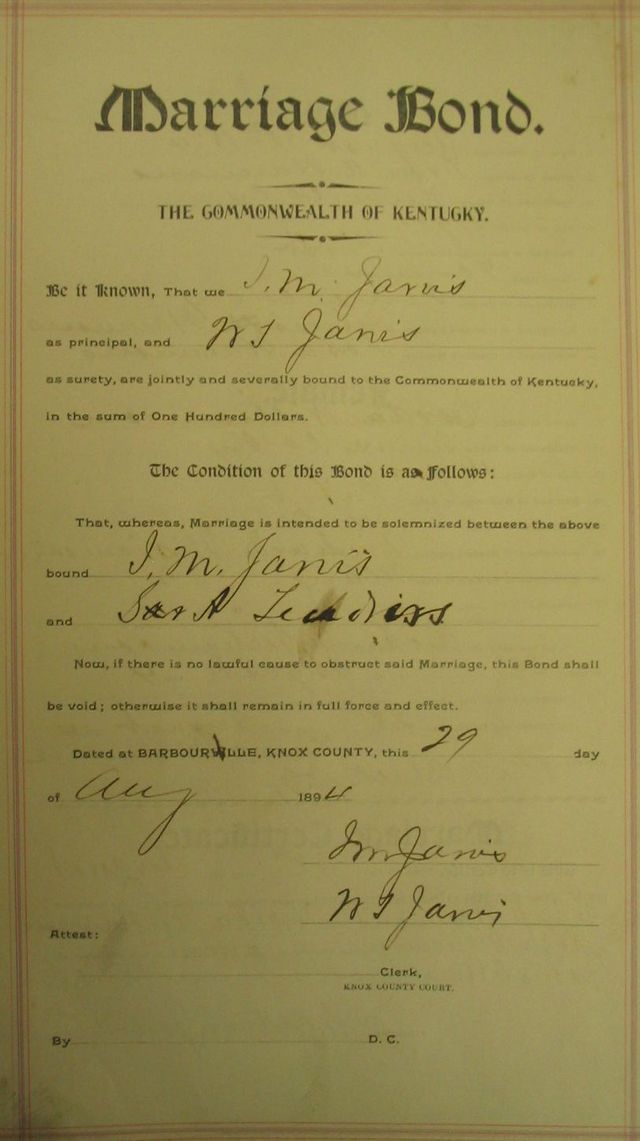 Marriage Bond.
THE COMMONWEALTH OF KENTUCKY.
Be it Known, That we J. M. Jarvis
as principal, and W S Jarvis
as surety, are jointly and severally bound to the Commonwealth of Kentucky,
in the sum of One Hundred Dollars.
The Condition of this Bond is as Follows:
That, whereas, Marriage is intended to be solemnized between the above
bound J. M. Jarvis
and
Now, if there is no lawful cause to obstruct said Marriage, this Bond shall
be void; otherwise it shall remain in full force and effect.
Dated at BARBOURVILLE, KNOX COUNTY, this 29 day
of Aug 1894
J M Jarvis
W S Jarvis
Attest:
Clerk,
KNOX COUNTY COURT.
By D. C.